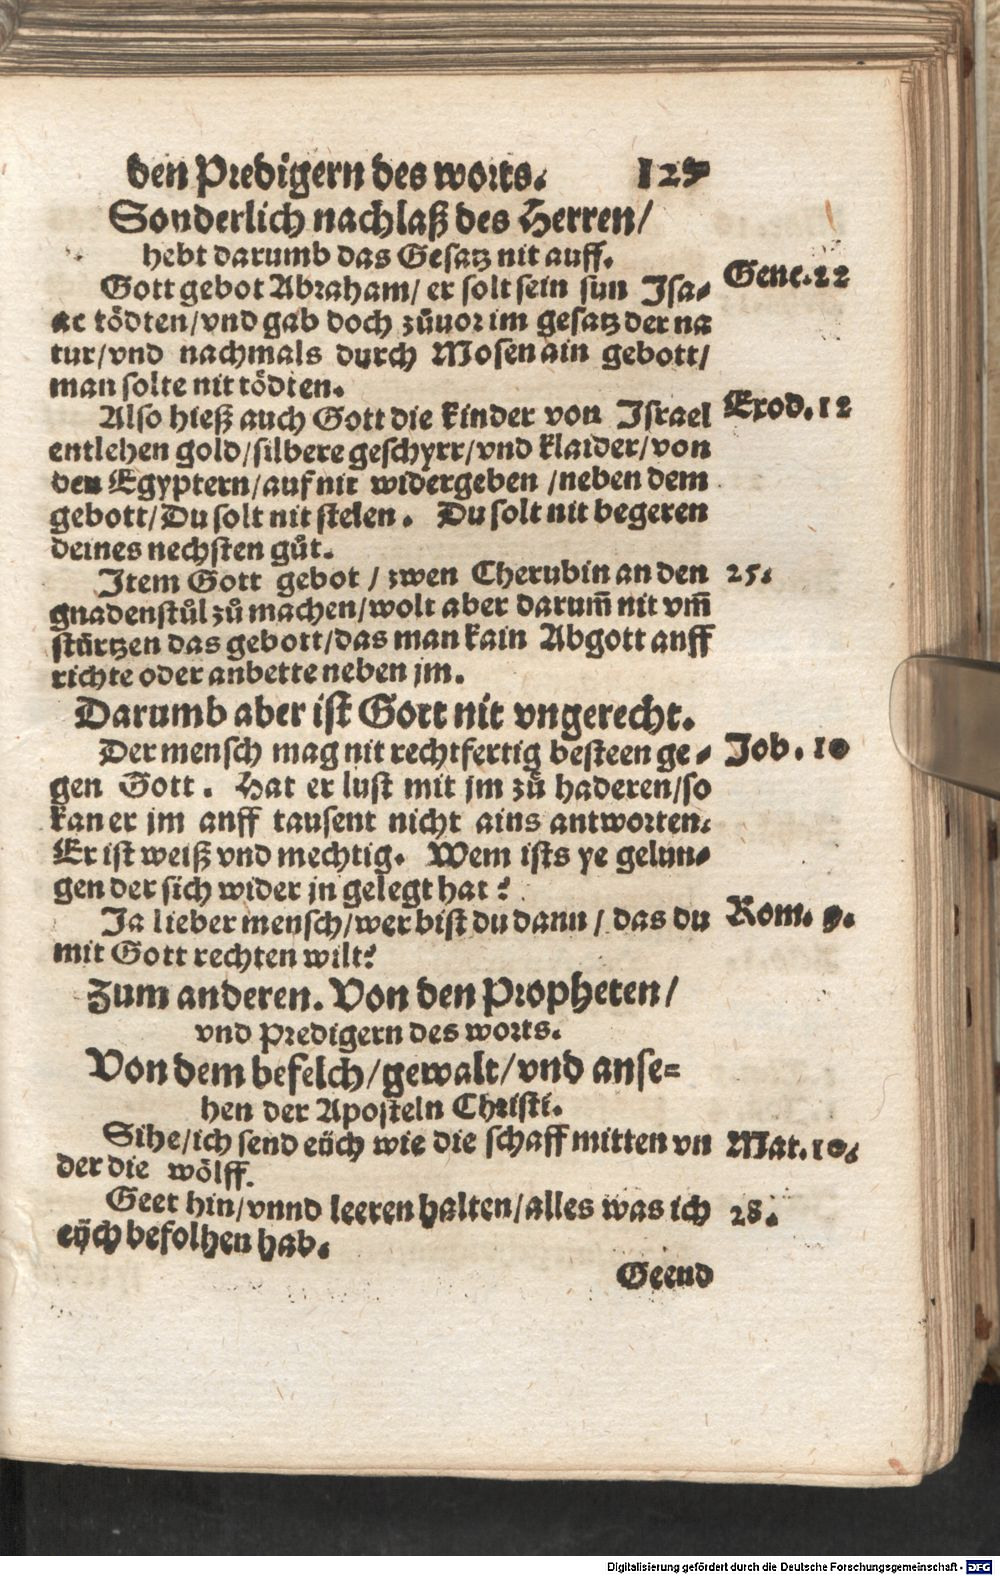 den Predigern des worts. 125
Sonderlich nachlaß des Herren/
hebt darumb das Gesatz nit auff.
Gott gebot Abraham/ er solt sein sun Isa- Gene.22
ac tödten/vnd gab doch zůuor im gesatz der na
tur/vnd nachmals durch Mosen ain gebott/
man solte nit tödten.
Also hieß auch Gott die kinder von Israel Exod.12
entlehen gold/silbere geschyrr/vnd klaider/von
den Egyptern/auf nit widergeben /neben dem
gebott/Du solt nit stelen. Du solt nit begeren
deines nechsten gůt.
Item Gott gebot / zwen Cherubin an den 25.
gnadenstůl zů machen/wolt aber darum̃ nit vm̃
stürtzen das gebott/das man kain Abgott auff
richte oder anbette neben jm.
Darumb aber ist Gott nit vngerecht.
Der mensch mag nit rechtfertig besteen ge- Job. 10
gen Gott. Hat er lust mit jm zů haderen/so
kan er jm auff tausent nicht ains antworten.
Er ist weiß vnd mechtig. Wem ists ye gelun-
gen der sich wider jn gelegt hat?
Ja lieber mensch/wer bist du dann / das du Rom. 9.
mit Gott rechten wilt?
Zum anderen. Von den Propheten/
vnd Predigern des worts.
Von dem befelch/gewalt/vnd anse=
hen der Aposteln Christi.
Sihe/ich send eüch wie die schaff mitten vn Mat.10.
der die wölff.
Geet hin/vnnd leeren halten/alles was ich 28.
eüch befolhen hab.
Geend
Digitalisierung gefördert durch die Deutsche Forschungsgemeinschaft - DFG